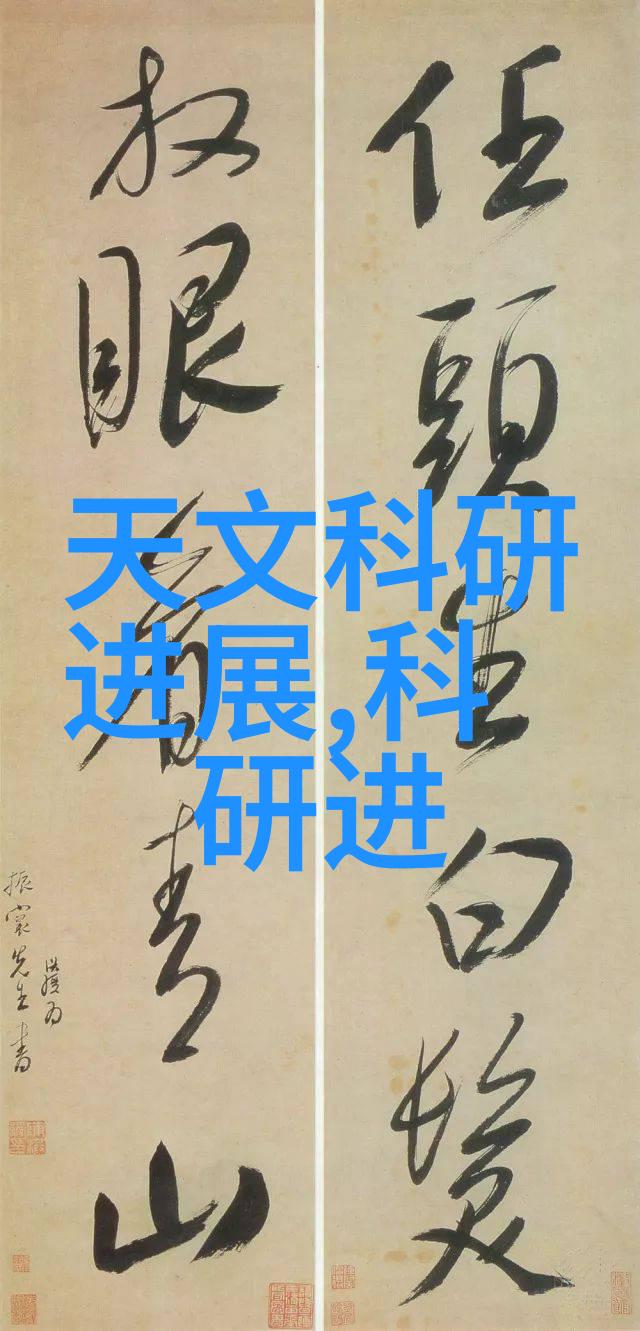 任頭生白髮
放眼看青山
先生書
天文科研
进展,科
研进